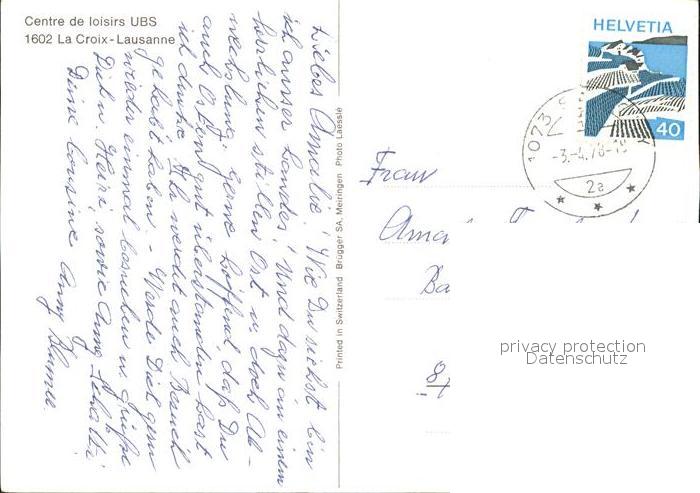 Centre de loisirs UBS
1602 La Croix-Lausanne
Liebes Amalie! Wie Du siehst bin
ich ausser Landes! Und dazu an einem
herrlichen stillen Ort u. doch Ab-
wechslung. Gerne hoffend, daß Du
auch Ostern gut überstanden hast
ich denke Ihr werdet auch Besuch
gehabt haben. - Werde Dich gern
wieder einmal besuchen u. grüße
Dich u. Heiri, sowie Anna
Deine Cousine Anny
Printed in Switzerland Brügger SA, Meiringen Photo Laessle
HELVETIA
40
1073
-3.-4.78-19
2a
Frau
Ama
Ba
privacy protection
Datenschutz
8